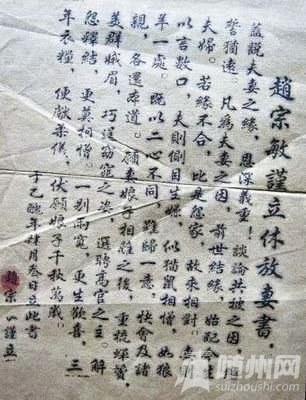 趙宗敏謹立休放妻書，
蓋說夫妻之緣，恩深義重！談論共被之因，
誓猶遠。凡為夫妻之因，前世結緣，始配
夫婦。若緣不合，比是怨家，故來相對
以言數口，夫則側目生嫌，似貓鼠相憎，如狼
羊一處。既以二心不同，難歸一意，快會及諸
親，各還本道。願妻娘子相離之後，重梳蟬鬢，
美群娥眉，巧逞窈窕之姿，選聘高官之主。解
怨釋結，更莫相憎。一別兩寬，更生歡喜。三
年衣糧，便獻柔儀。伏願娘子千秋萬歲。
于乙酉年肆月叁日立此書
趙宗敏謹立
随州网
suizhoushi.com